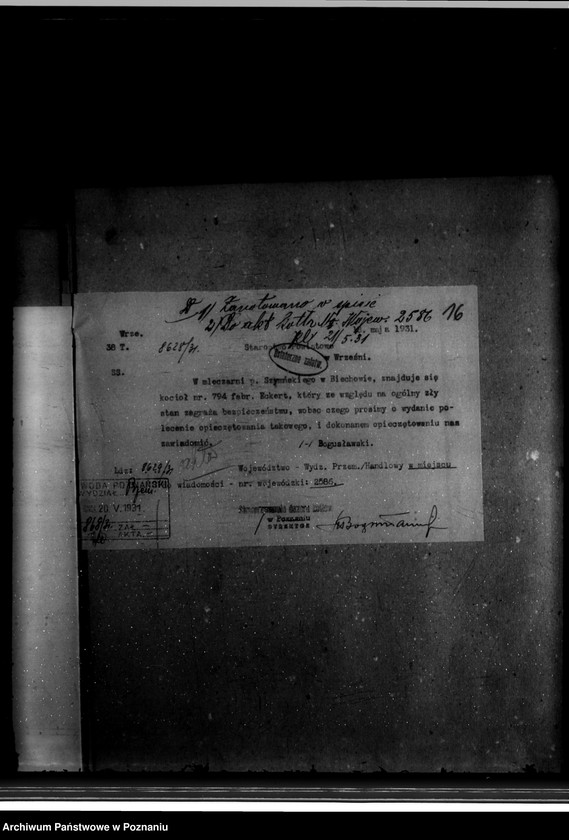 1/ Zanotowano w spisie
2/ Do akt kotła Nr. Wojew. 2586 16
21/5.31
Wrze. maja 1931.
38 T. 8628/31.
Starostwo Powiatowe
w Wrześni.
SZ.
W mleczarni p. Szymańskiego w Biechowie, znajduje się
kocioł nr. 794 fabr. Eckert, który ze względu na ogólny zły
stan zagraża bezpieczeństwu, wobec czego prosimy o wydanie po-
lecenia opieczętowania takowego, i dokonanem opieczętowaniu nas
zawiadomić. /-/ Bogusławski.
Województwo - Wydz. Przem./Handlowy w miejscu
wiadomości - nr. wójewódzki: 2586.
WODA POZNAŃSKI
WYDZIAŁ
20 V. 1931
ZAŁ.
AKTA
w Poznaniu
Archiwum Państwowe w Poznaniu